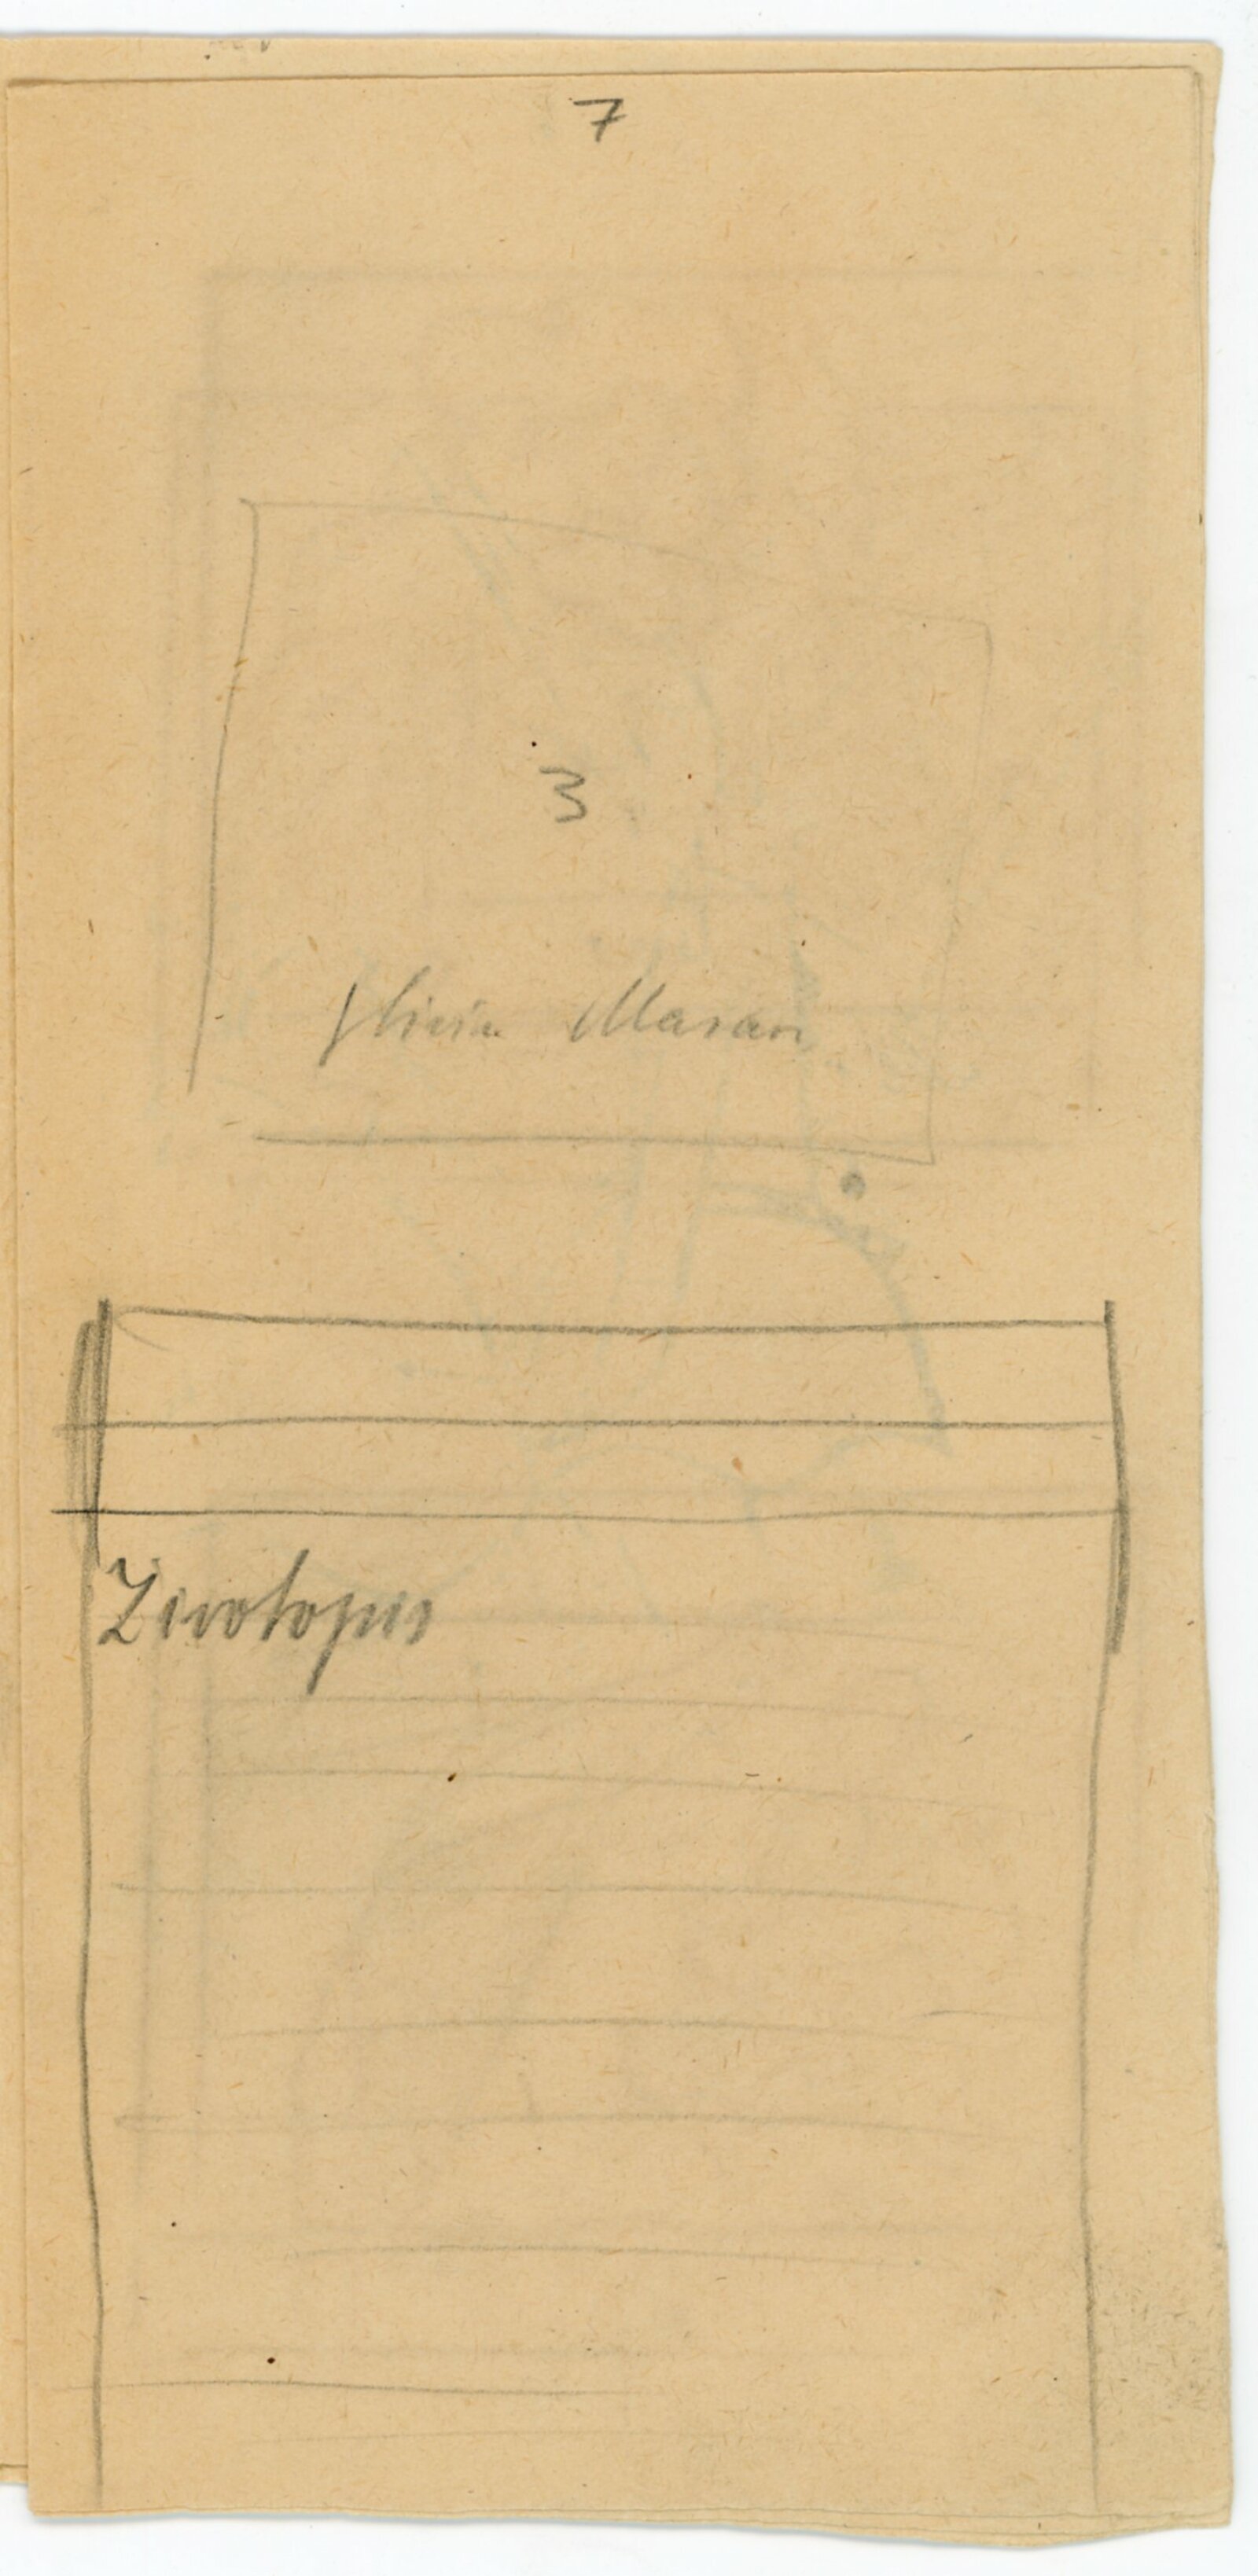 7
3
Masan
Zivotopis